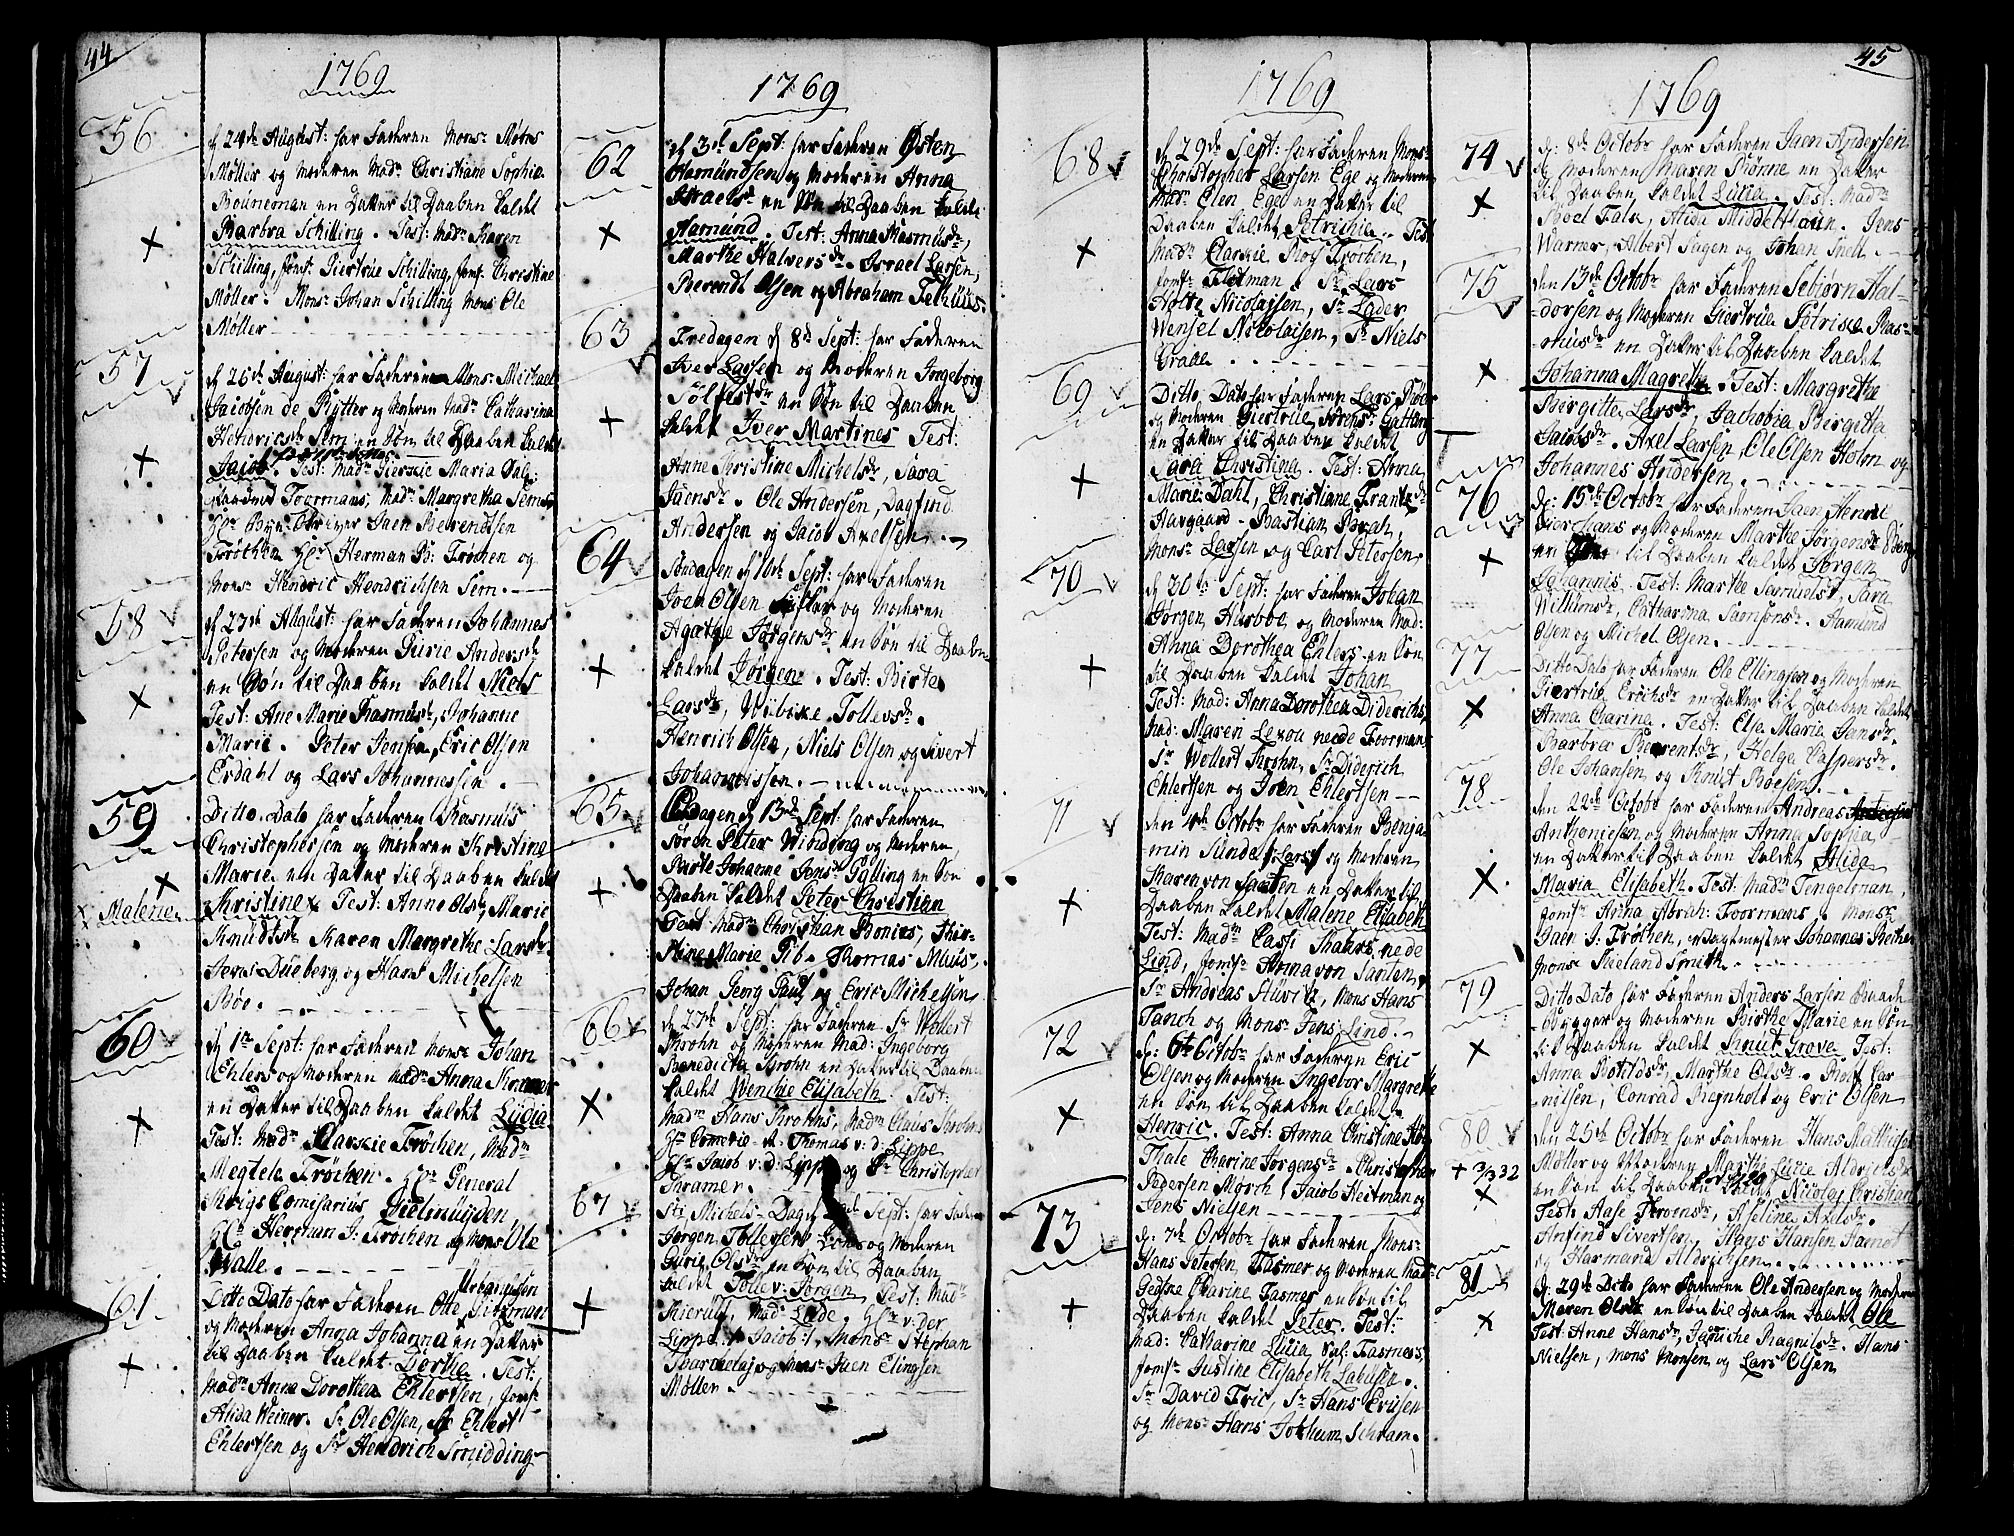 44
1769
56
d 24de August: har Faderen Mons: Møns
Møller og Moderen Mad: Christiane Sophia
en Datter til Daaben kaldet
Barbra Schilling. Test: Mad: Karen
Schilling, Jomf: Giertrue Schilling, Jomf: Christine
Møller. Mons: Johan Schilling Mons Ole
Møller
57
d 26de August: har Faderen Mons: Michael
Jacobsen de Rytter og Moderen Mad: Catharina
Hendricsdr Sem en Søn til Daaben kaldet
Jacob. Test: Mad: Maria
Foormans, Mad: Margretha Sem
Hr Bye-Skriver Jaen Berendtsen
Frøchen Hr Herman B: Frøchen og
Mons Hendric Hendrichsen Sem.
58
d 27de August: har Faderen Johannes
Petersen og Moderen Gurie Andersdr
en Søn til Daaben kaldet Niels
Test: Ane Marie Rasmusdr, Johanne
Marie. Peter Jensen, Eric Olsen
Erdahl og Lars Johannessen.
59
Ditto Dato har Faderen Rasmus
Christophersen og Moderen Kristine
Marie en Datter til Daaben kaldet
x Malene
Kristine x Test: Anne Olsdr, Marie
Knudtsdr Karen Margrethe Larsdr
Jens Dueberg og Hans Michelsen
Bøe.
60
d 1te Sept: har Faderen Mons: Johan
Ehlers og Moderen Mad: Anna Kramer
en Datter til Daaben kaldet Lucia
Test: Mad: Frøchen, Mad:
Megtele Frøchen. Hr General
Krigs Comisarius Gielmuyden,
Hr Herman J: Frøchen og Mons Ole
Walle.
61
Urbanusen
Ditto Dato har Faderen Otte
og Moderen Anna Johanna en Datter
til Daaben kaldet Dorthe. Test:
Mad: Anna Dorothea Ehlertsen, Jomf:
Alida Weiner. Sr Ole Olsen, Sr Ehlert
Ehlertsen og Sr Hendrich Smidding
1769
62
d 3de Sept: har Faderen Østen
Hamundsen og Moderen Anna
Israelsdr en Søn til Daaben kaldet
Hamund. Test: Anna Rasmusdr,
Marthe Halversdr. Israel Larsen,
Berendt Olsen og Abraham
63
Fredagen d 8de Sept: har Faderen
Iver Larsen og Moderen Ingeborg
en Søn til Daaben
kaldet Iver Martines Test:
Anne Kristine Michelsdr, Sara
Jaensdr. Ole Andersen, Dagfind
Andersen og Jacob Axelsen.
64
Søndagen d 10de Sept: har Faderen
Joen Olsen og Moderen
Agathe Jørgensdr en Søn til Daaben
kaldet Jørgen. Test: Birte
Larsdr, Wibike Tollevsdr.
Henrich Olsen, Niels Olsen og Sivert
Johannissen.
65
d 13de Sept har Faderen
Søren Peter Winding og Moderen
Birte Johanne Jensdr en Søn
Daaben kaldet Peter Christian
Test Mad: Christian
Marie Pib. Thomas Muus,
Johan Georg Paul og Eric Michelsen
66
d 27de Sept: har Faderen Sr Wollert
Krohn og Moderen Mad: Ingeborg
Benedicta Krohn en Datter til Daaben
kaldet Wenche Elisabeth Test:
Mad: Hans Krohns, Mad: Claus Krohns
Thomas v: d: Lippe
Hr Jacob v: d: Lippe og Sr Christopher
Kramer.
67
Sti Michels-Dag Sept: har Faderen
Jørgen Tollefsen og Moderen
Gurie Olsdr en Søn til Daaben
kaldet Tolle v: Jørgen, Test: Mad:
Mad: Lade, Hr v: der
Lippe Jacob, Mons Stephan
og Mons: Jaen Elingsen
Møller.
1769
68
d 29de Sept: har Faderen Mons:
Christopher Larsen Ege og Moderen
Mad: Elen Ege en Datter til
Daaben kaldet Petrichia. Test
Mad: Frøchen,
Jomf: Flotman. Sr Lars
Holte Nicolaisen, Sr Lader
Wensel Nicolaisen, Sr Niels
69
Ditto Dato har Faderen Lars
og Moderen Giertrue
en Datter til Daaben kaldet
Sara Christina. Test: Anna
Marie Dahl, Christiane Frantzdr
Aargaard. Bastian Brah,
Mons: Larsen og Carl Petersen
70
d 30te Sept: har Faderen Johan
Jørgen Harboe, og Moderen Mad:
Anna Dorothea Ehlers en Søn
til Daaben kaldet Johan
Test: Mad: Anna Dorothea Diderichs
Mad: Maren Lexou neede Foorman
Sr Wollert Krohn, Sr Diderich
Ehlertsen og Iven Ehlertsen
71
den 4de Octobr har Faderen Benja
min Sunde Lars og Moderen
Karen von Santen en Datter til
Daaben kaldet Malene Elisabeth
Test: Mad: nede
Lind, Jomfr Anna von Santen,
Sr Andreas Stuvitz, Mons Hans
Tanch og Mons: Jens Lind.
72
d: 6te Octobr har Faderen Eric
Olsen og Moderen Ingebor Margrethe
en Søn til Daaben kaldet
Henric. Test: Anna Christine
Thale Charine Jørgensdr. Christopher
Pedersen Mørch, Jacob Heitman og
Jens Nielsen
73
d: 7de Octobr har Faderen Mons:
Hans Petersen Fasmer og Moderen Mad:
Gedske Charine Fasmer en Søn til
Daaben kaldet Peter. Test:
Mad: Catharine Lucia Sal: Fasmers,
Jomfr Justine Elisabeth
Sr David Fric, Sr Hans Erichsen
og Mons: Hans Jochum Schram.
45
1769
74
d: 8de Octobr har Faderen Jaen Andersen
og Moderen Maren Rønne en Datter
til Daaben kaldet Lucia. Test: Mad:
Boel Fals, Alida Middelthuen. Jens
Warner, Albert Sagen og Johan Snell
75
den 13de Octobr har Faderen Sebiørn Hal-
-dorsen og Moderen Giertrue Petrise Ras-
-musdr en Datter til Daaben kaldet
Johanna Magreta. Test: Margrethe
Birgitte Larsdr, Jachobia Birgitta
Jacobsdr. Axel Larsen, Ole Olsen Holm og
Johannes Andersen.
76
d: 15de Octobr har Faderen Jaen Henric
og Moderen Marthe Jørgensdr
en til Daaben kaldet Jørgen
Johannis. Test: Marthe Samuelsdr, Sara
Willumsdr, Catharina Samsonsdr. Hamund
Olsen og Michel Olsen.
77
Ditto Dato har Faderen Ole Ellingsen og Moderen
Giertrue Erichsdr en Datter til Daaben kaldet
Anna Charina. Test: Else Marie Jansdr.
Barbra Berentsdr, Helge Caspersdr.
Ole Johansen, og Knut Boesen.
78
den 22de Octobr har Faderen Andreas
Anthoniesen og Moderen Anna Sophia
en Datter til Daaben kaldet Alida
Maria Elisabeth. Test: Mad: Tengelman,
Jomfr Anna Abrah: Foormans. Mons:
Jaen J: Frøchen, Vagtmester Johannes
Mons Kieland Smith.
79
Ditto Dato har Faderen Anders Larsen Baade
-bygger og Moderen Birthe Marie en Søn
til Daaben kaldet Knut Grove Test:
Anna Botildsdr, Marthe Olsdr. Rolf Cor
-nilsen, Conrad Reinholt og Eric Olsen
80
+ 3/3 32
den 25de Octobr har Faderen Hans Mathias
Møller og Moderen Marthe Lucie Aldrichsdr
en Søn til Daaben kaldet Nicolay Christian
Test: Aase Iversdr, Aseline Axelsdr.
Anfind Sivertsen, Hans Hansen
og Harmand Aldrichsen.
81
d: 29de Ditto har Faderen Ole Andersen og Moderen
Maren Olsdr en Søn til Daaben kaldet Ole
Test: Anne Hansdr, Ragnilsdr. Hans
Nielsen, Mons Monsen, og Lars Olsen